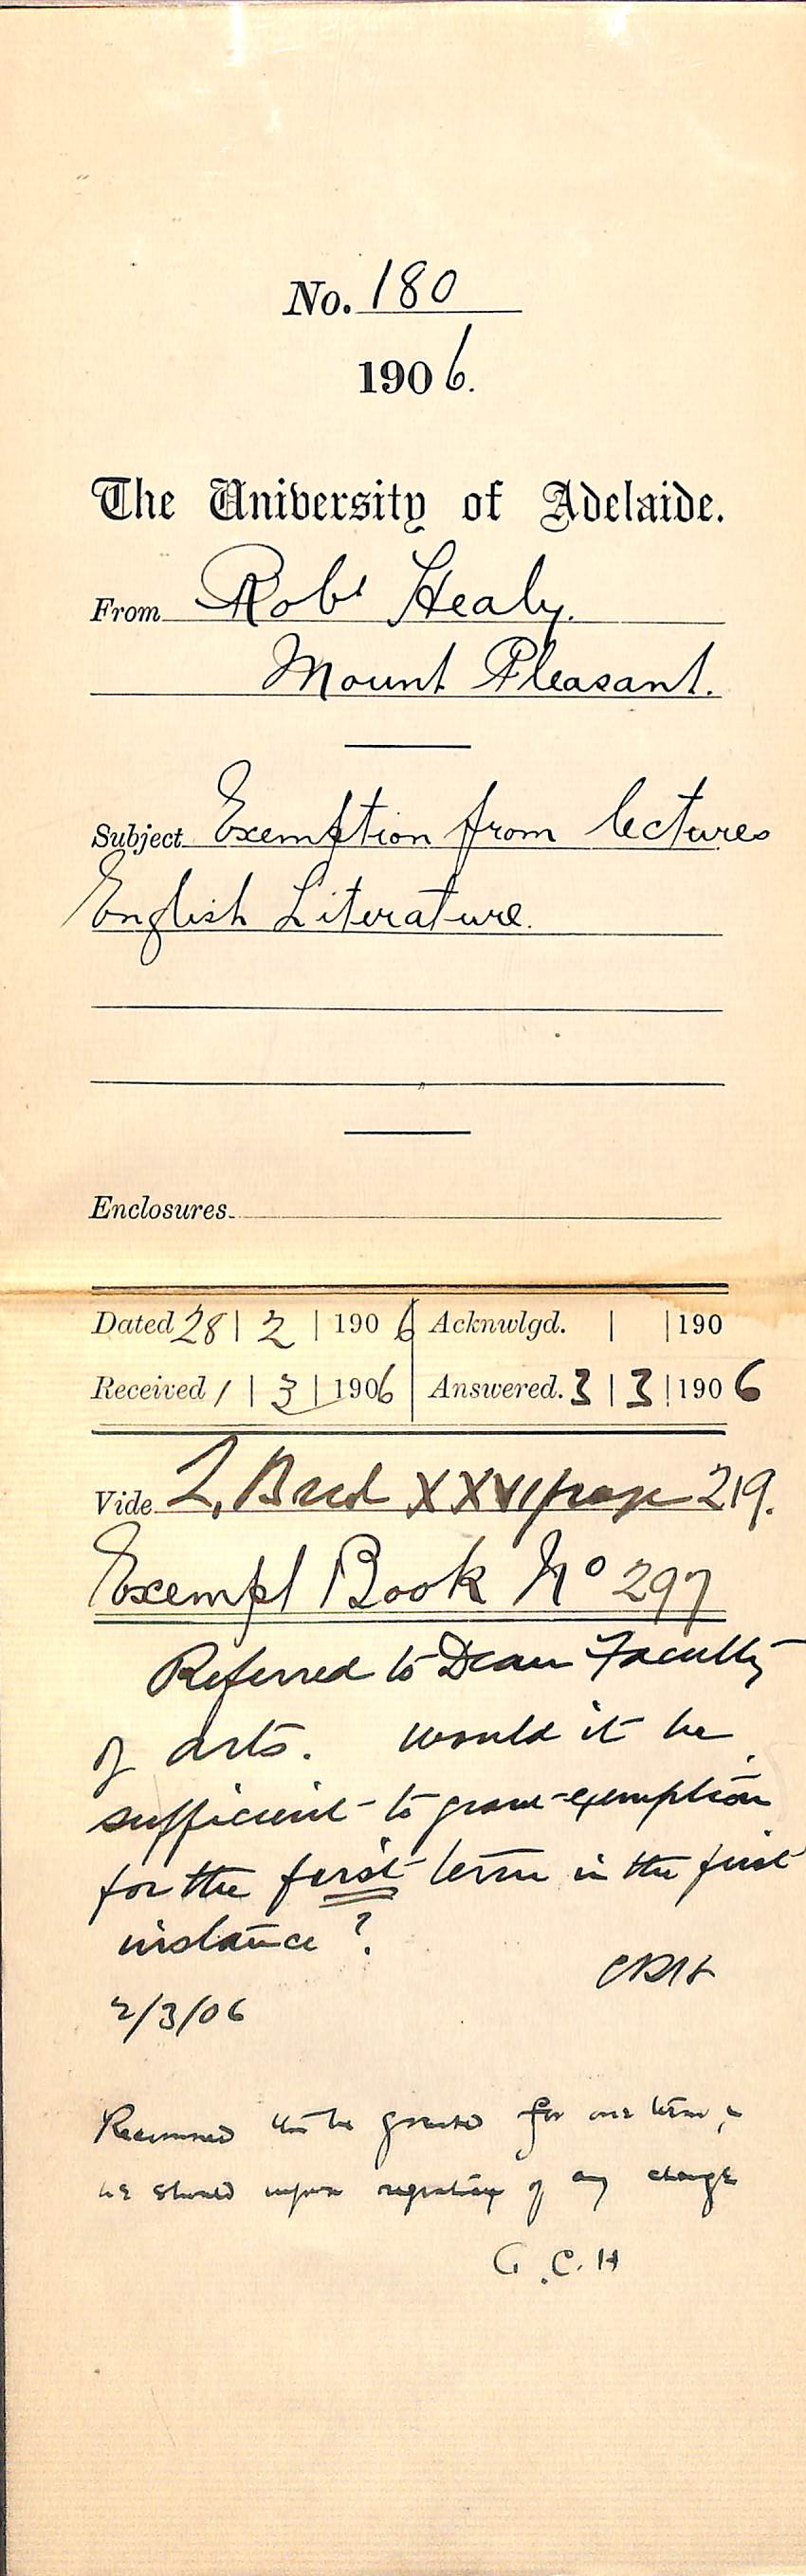 No. 180
1906.
The University of Adelaide.
From Robt Healy.
Mount Pleasant.
Subject Exemption from lectures
English Literature.
Enclosures
Dated 28 | 2 | 1906 Acknwlgd. | | 190
Received 1 | 3 | 1906 Answered. 3 | 3 | 1906
Vide L, XXVI page 219.
Exempt Book No 297
Referred to Dean Faculty
of Arts. Would it be
sufficient to grant exemption
for the first term in the first
instance?
CRH
2/3/06
Recommend this be granted for one term,
he should inform registrar of any change
G.C.H